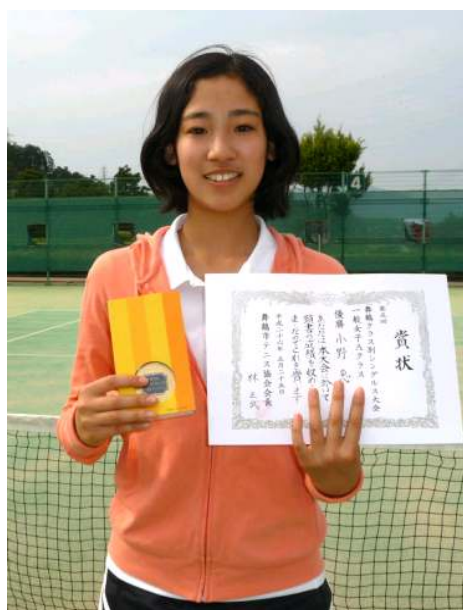 賞状
第五回
舞鶴クラス別シングルス大会
一般女子Aクラス
優勝 小野
あなたは本大会において
頭書の成績を収め
ましたのでこれを賞します
平成二十六年五月二十五日
舞鶴市テニス協会会長
林 正武
4